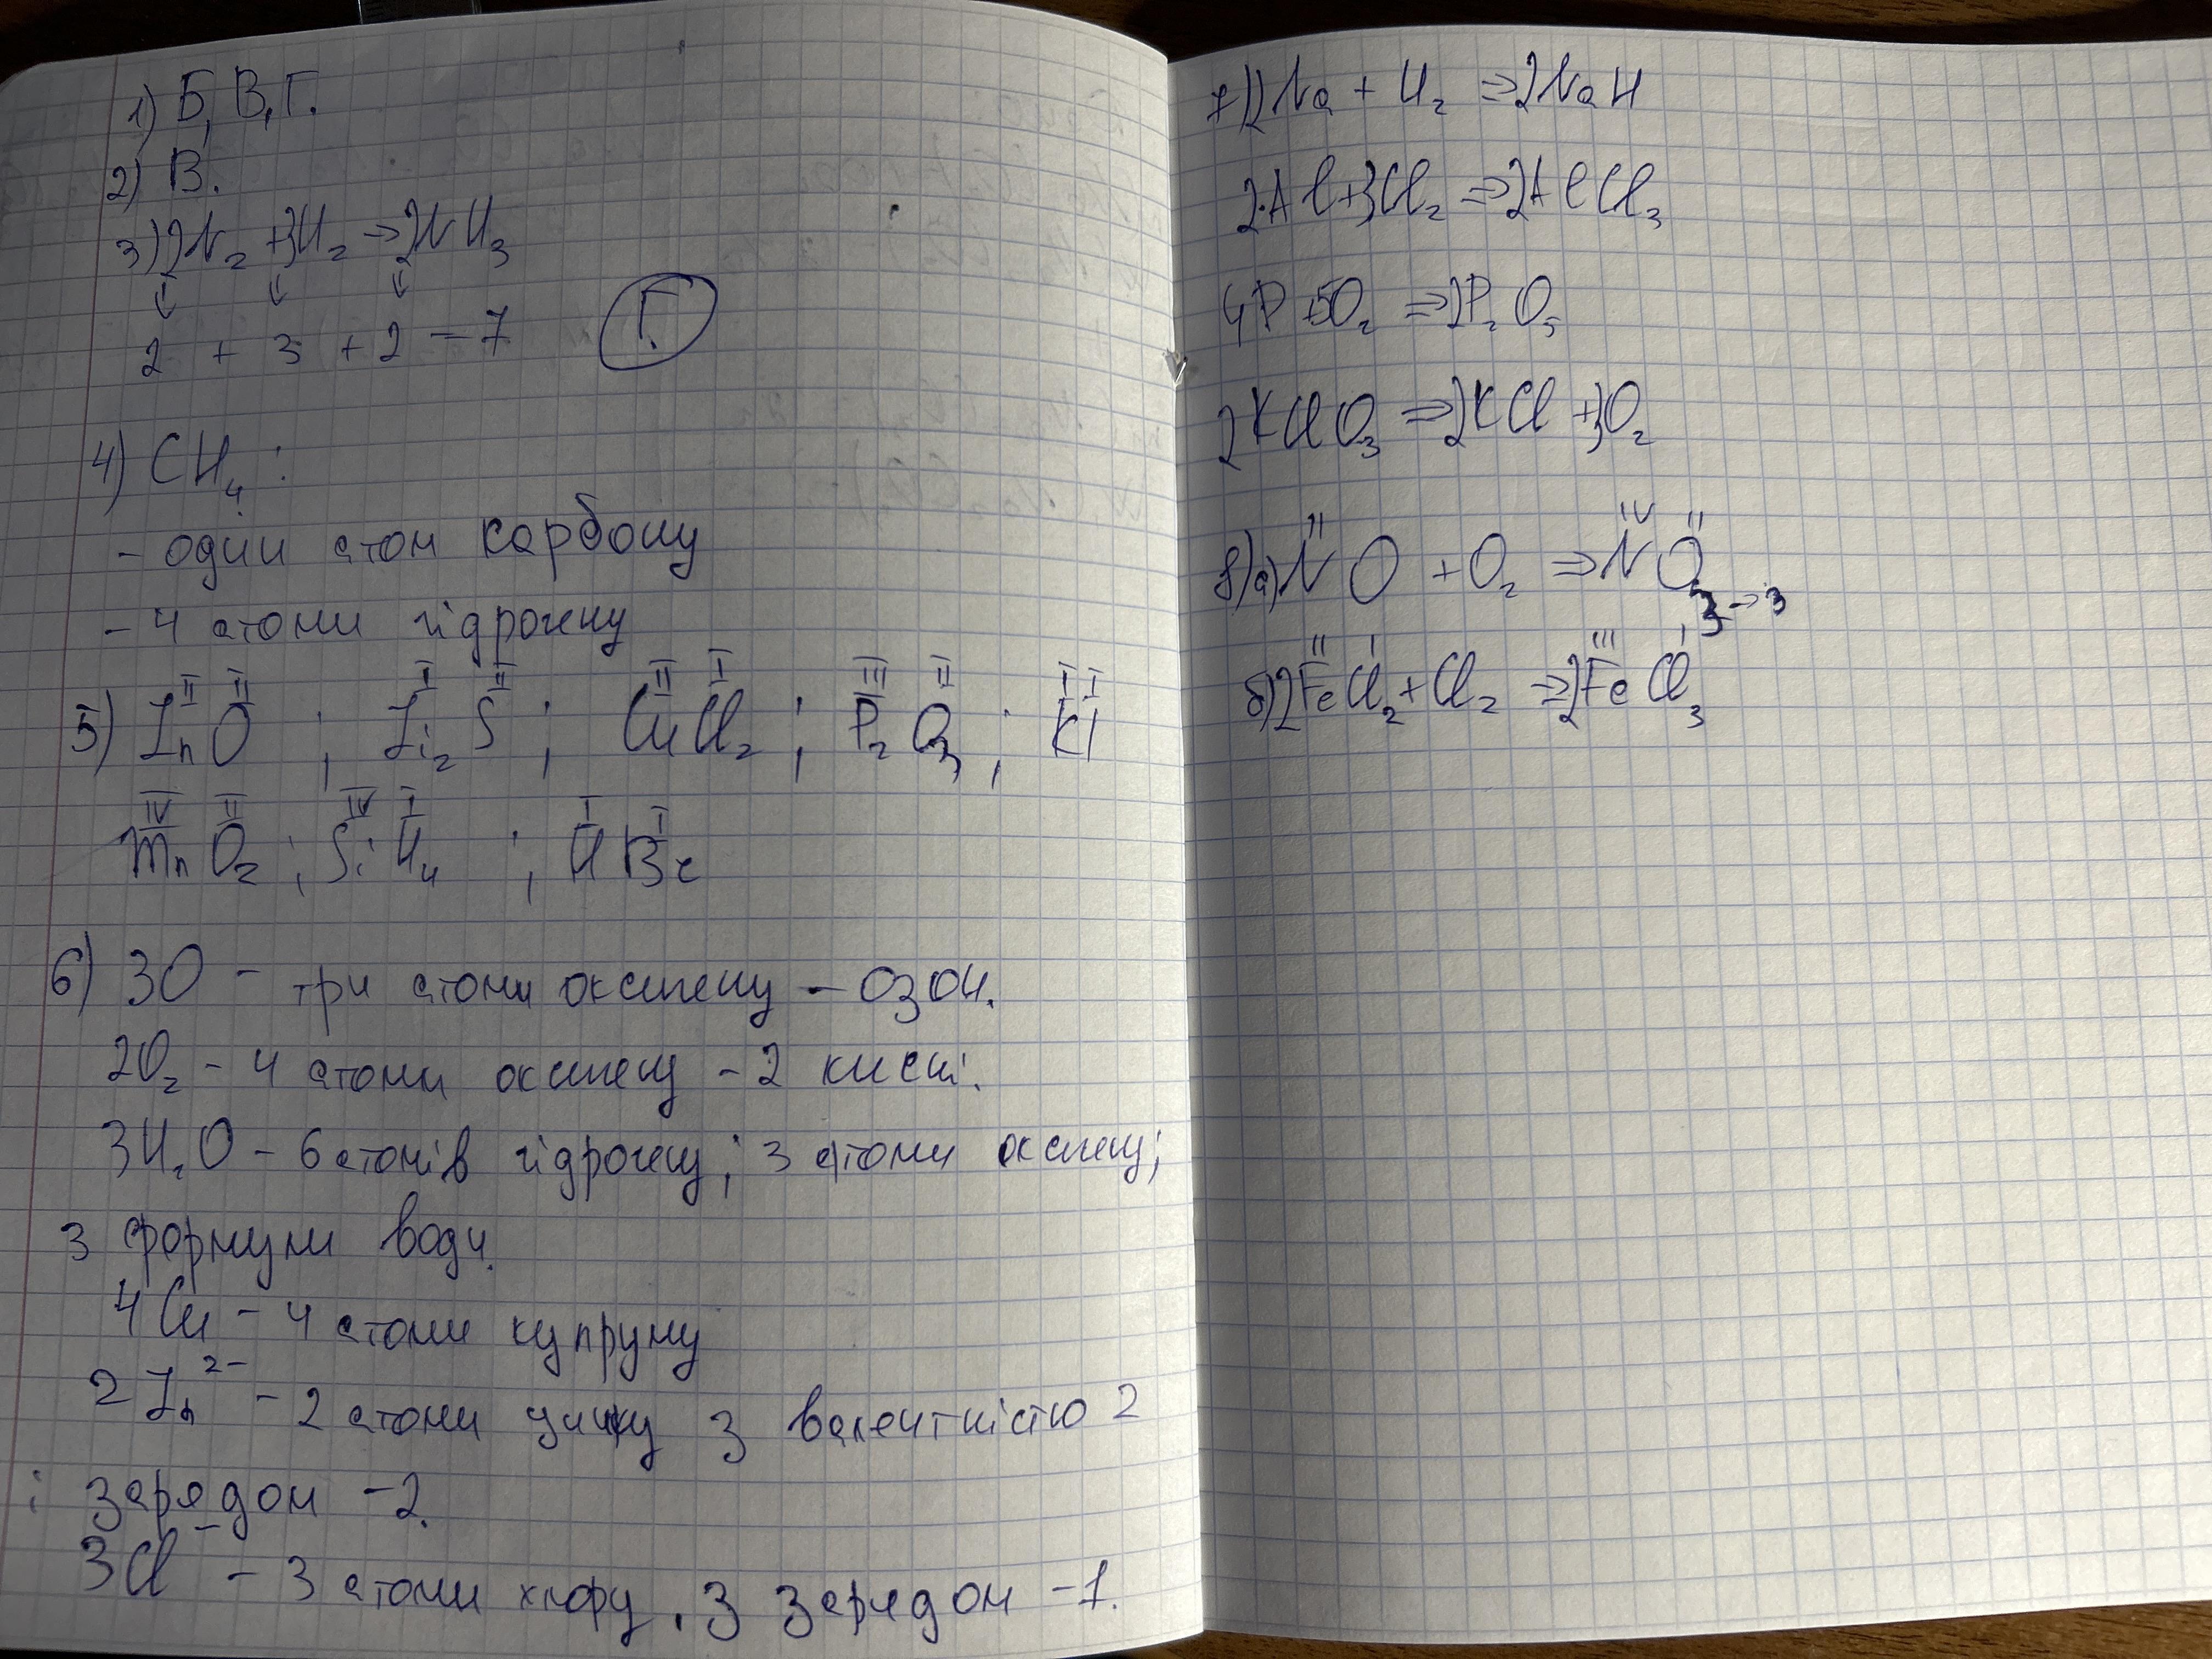 1) Б, В, Г.
2) В.
3) 2N₂ + 3H₂ → 2NH₃
↓ ↓ ↓
2 + 3 + 2 - 7 Г.
4) CH₄ :
- один атом карбону
- 4 атоми гідрогену
II II I II II I III II I I
5) ZnO ; Li₂S ; CuCl₂ ; P₂O₃ ; KI
IV II IV I I I
MnO₂ ; SiH₄ ; HBr
6) 3O - три атоми оксигену - озон.
2O₂ - 4 атоми оксигену - 2 кисні.
3H₂O - 6 атомів гідрогену; 3 атоми оксигену;
3 формули води.
4Cu - 4 атоми купруму
2Zn²⁻ - 2 атоми цинку з валентністю 2
і зарядом -2.
3Cl⁻ - 3 атоми хлору, з зарядом -1.
7) 2Na + H₂ ⇒ 2NaH
2·Al + 3Cl₂ ⇒ 2AlCl₃
4P + 5O₂ ⇒ 2P₂O₅
2KClO₃ ⇒ 2KCl + 3O₂
II IV II
8) а) NO + O₂ ⇒ NO₃ → 3
II I III I
б) 2FeCl₂ + Cl₂ ⇒ 2FeCl₃